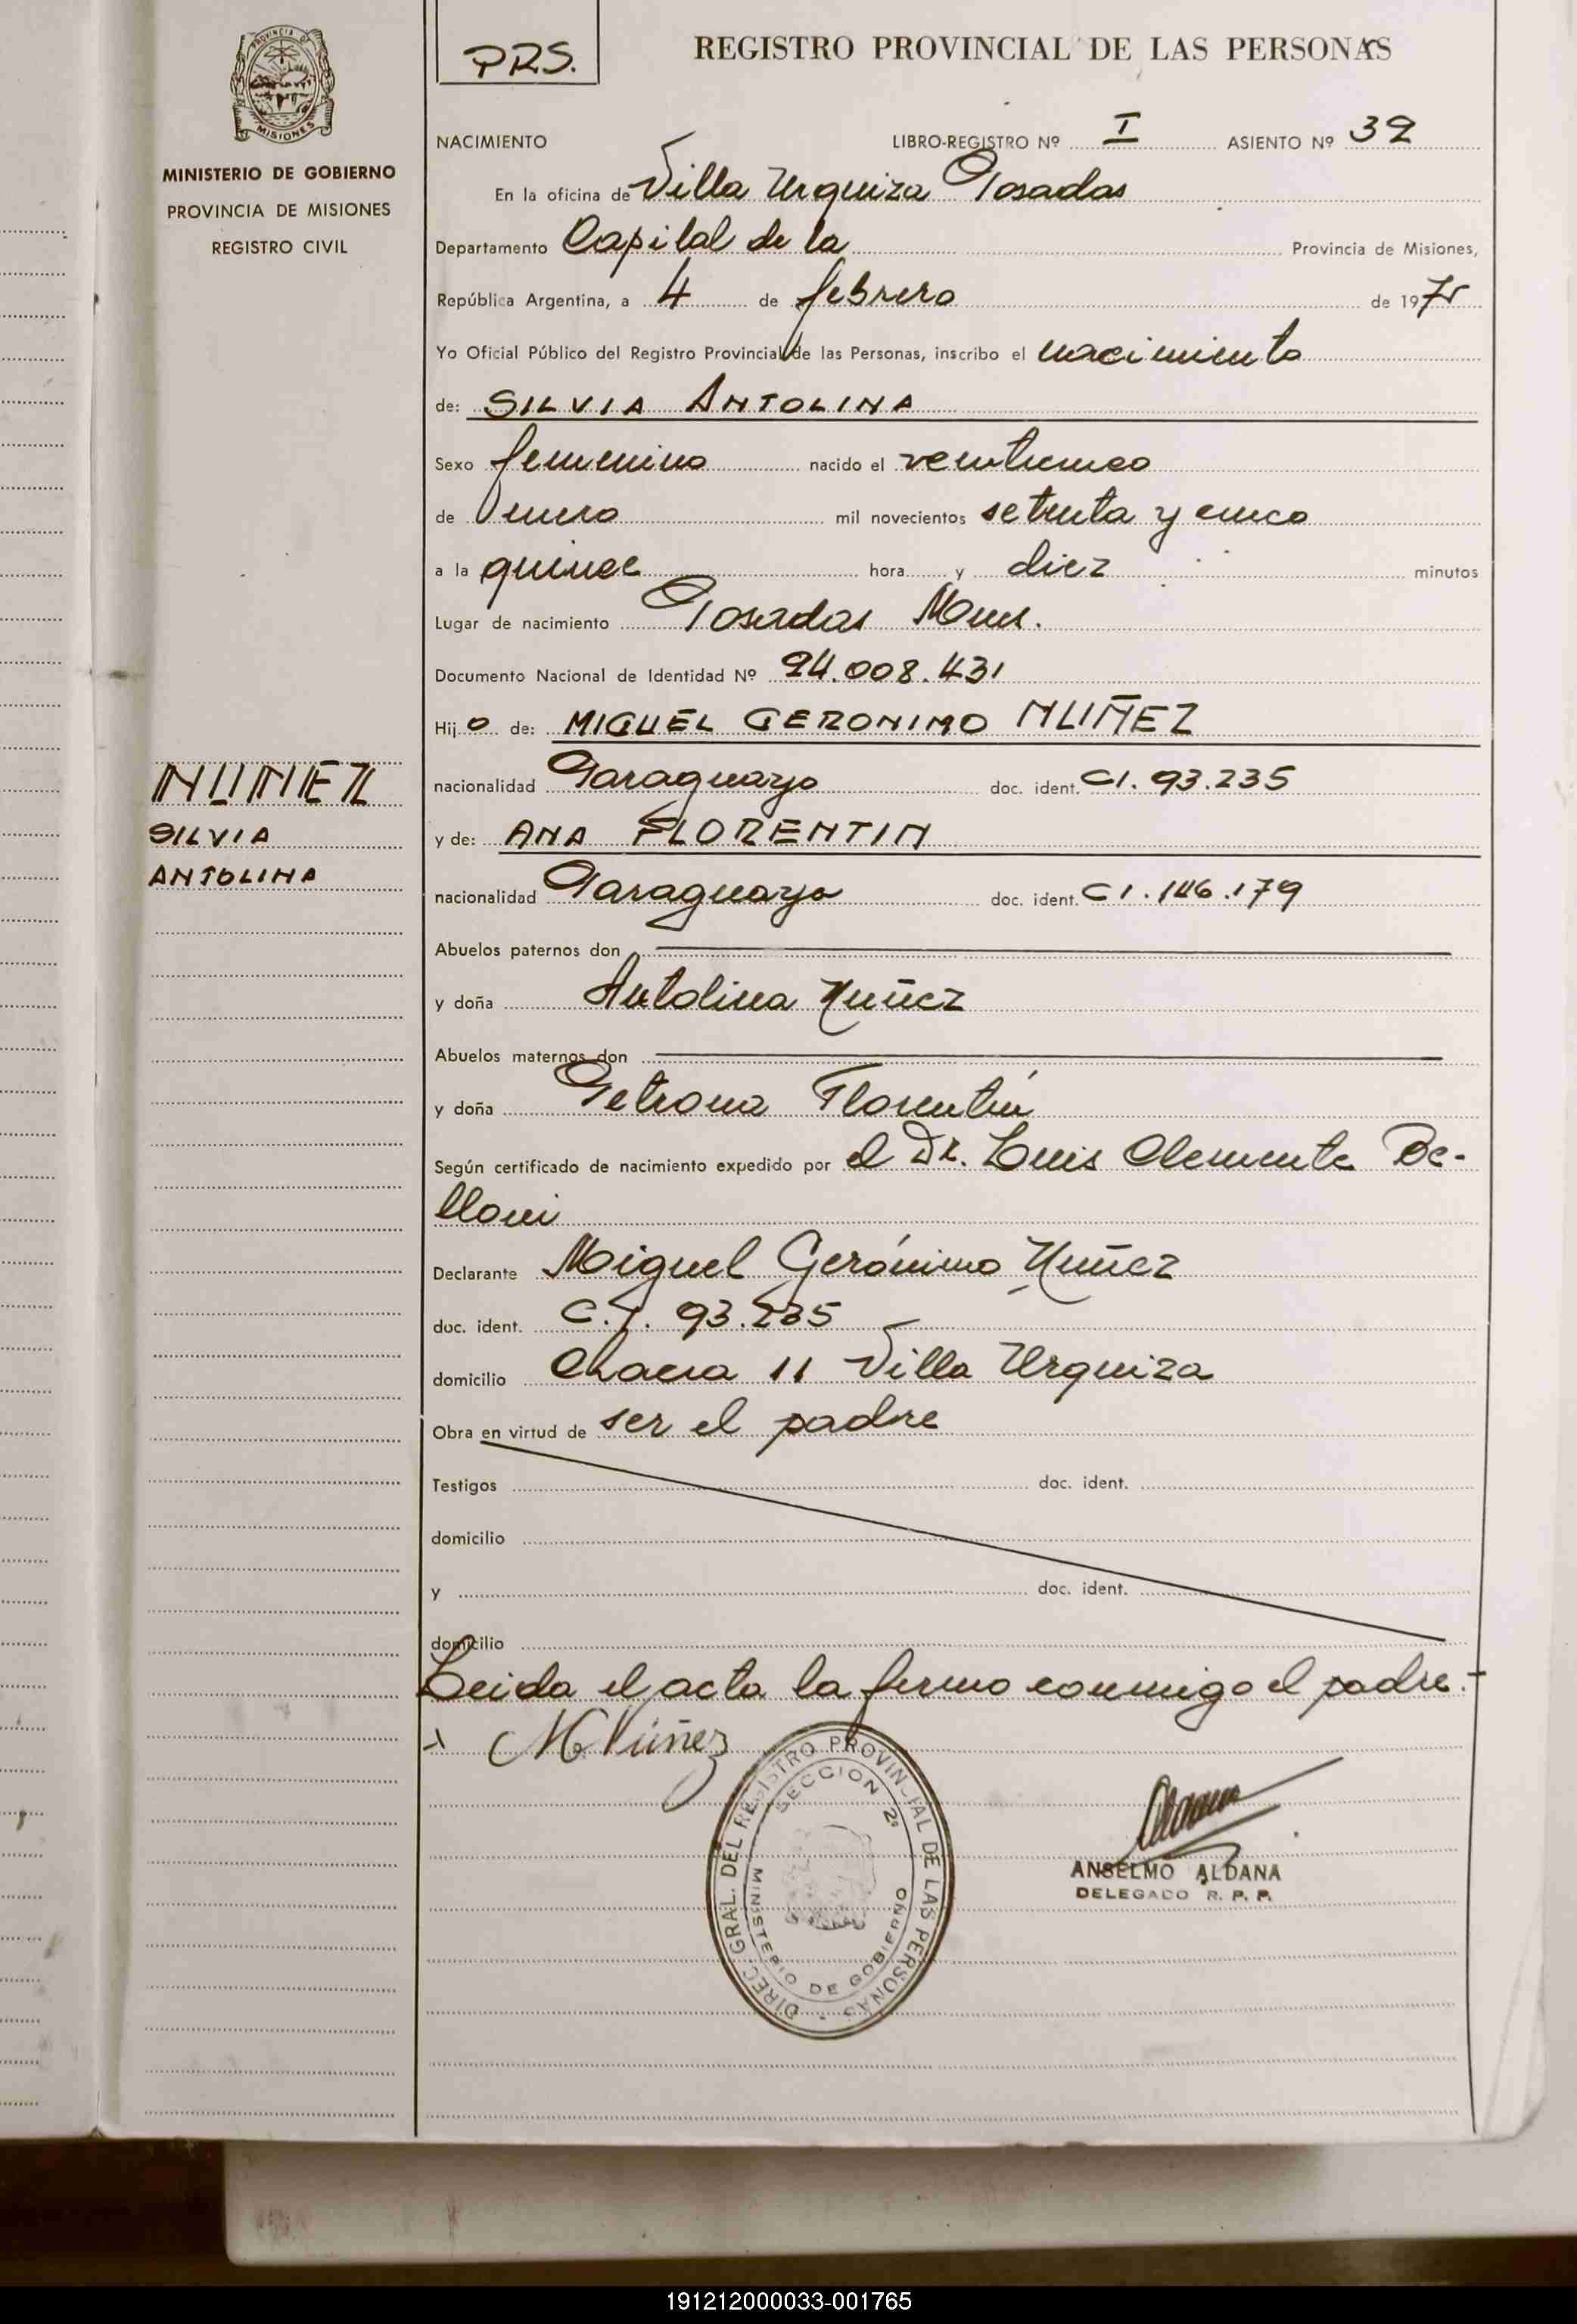 PRS.
REGISTRO PROVINCIAL DE LAS PERSONAS
PROVINCIA D
MISIONES
MINISTERIO DE GOBIERNO
PROVINCIA DE MISIONES
REGISTRO CIVIL
NACIMIENTO LIBRO-REGISTRO Nº I ASIENTO Nº 39
En la oficina de Villa Urquiza Posadas
Departamento Capital de la Provincia de Misiones,
República Argentina, a 4 de febrero de 1975
Yo Oficial Público del Registro Provincial de las Personas, inscribo el nacimiento
de: SILVIA ANTOLINA
Sexo femenino nacido el venticinco
de enero mil novecientos setenta y cinco
a la quince hora y diez minutos
Lugar de nacimiento Posadas Mnes.
Documento Nacional de Identidad Nº 24.008.431
Hijo de: MIGUEL GERONIMO NUÑEZ
nacionalidad Paraguayo doc. ident. CI. 93.235
y de: ANA FLORENTIN
nacionalidad Paraguaya doc. ident. CI. 146.179
NUÑEZ
SILVIA
ANTOLINA
Abuelos paternos don
y doña Antolina Nuñez
Abuelos maternos don
y doña Petrona Florentín
Según certificado de nacimiento expedido por el Dr. Luis Clemente Be-
lloni
Declarante Miguel Gerónimo Nuñez
doc. ident. C.I. 93.235
domicilio Chacra 11 Villa Urquiza
Obra en virtud de ser el padre
Testigos doc. ident.
domicilio
y doc. ident.
domicilio
Leida el acta la firmo conmigo el padre.-
M Núñez
DIREC. GRAL. DEL REGISTRO PROVINCIAL DE LAS PERSONAS
SECCION 2ª
MINISTERIO DE GOBIERNO
ANSELMO ALDANA
DELEGADO R. P. P.
191212000033-001765